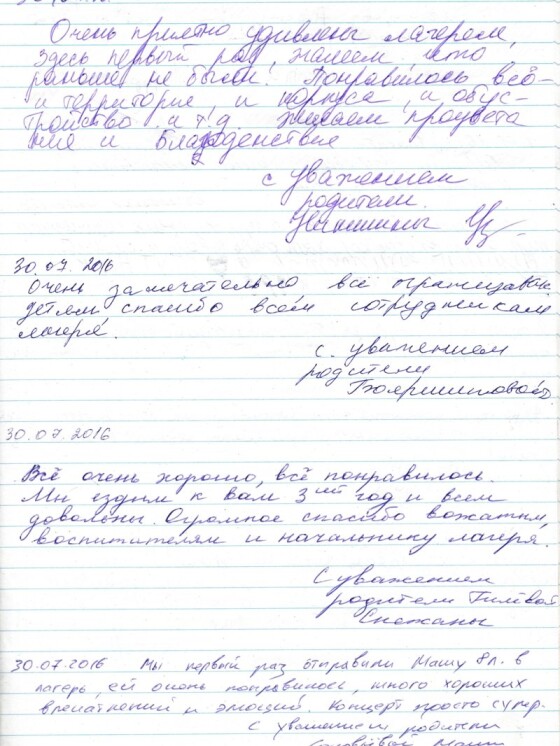 Очень приятно удивлены лагерем,
Здесь первый раз, жалеем что
раньше не были! Понравилось всё -
и территория, и корпуса, и обус-
тройство и т.д. желаем процвета
ния и благоденствие
с уважением
родители.
30.07.2016
Очень замечательно всё организован
детям спасибо всем сотрудникам
лагеря.
с уважением
родители
30.07.2016
Всё очень хорошо, всё понравилось.
Мы ездим к вам 3ий год и всем
довольны. Огромное спасибо вожатым,
воспитителям и начальнику лагеря.
С уважением
родители Гилёвой
Снежаны
30.07.2016 Мы первый раз отправили Машу 8л. в
лагерь, ей очень понравилось, много хороших
впечатлений и эмоций. Концерт просто супер.
с уважением родители